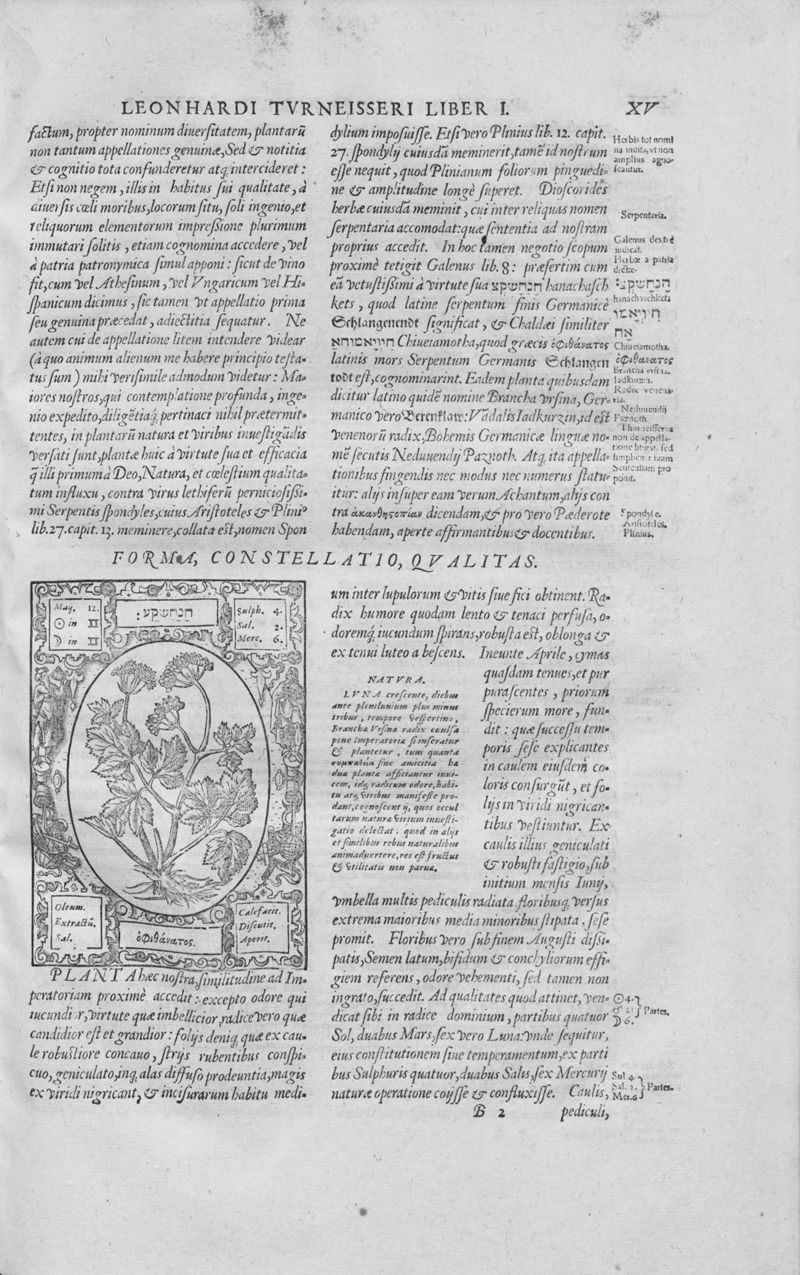 LEONHARDI TVRNEISSERI LIBER I.
XV
factum, propter nominum diuersitatem, plantarū
non tantum appellationes genuinæ, Sed & notitia
& cognitio tota confunderetur atq́; intercideret:
Etsi non negem, illis in habitus sui qualitate, à
diuersis cœli moribus, locorum situ, soli ingenio, et
reliquorum elementorum impressione plurimum
immutari solitis, etiam cognomina accedere, vel
à patria patronymica simul apponi: sicut de vino
fit, cum vel Athesinum, vel Vngaricum vel Hi-
spanicum dicimus, sic tamen vt appellatio prima
seu genuina præcedat, adiectitia sequatur. Ne
autem cui de appellatione litem intendere videar
(à quo animum alienum me habere principio testa-
tus sum) mihi verisimile admodum videtur: Ma-
iores nostros, qui contemplatione profunda, inge-
nio expedito, diligētiaq́; pertinaci nihil prætermit-
tentes, in plantarū natura et viribus inuestigādis
versati sunt, plantæ huic à virtute sua et efficacia
q̄ illi primum à Deo, Natura, et cœlestium qualita-
tum influxu, contra virus lethiferū perniciosissi-
mi Serpentis Spondyles, cuius Aristoteles & Plinius
lib. 27. capit. 13. meminere, collata est, nomen Spon
dylium imposuisse. Etsi vero Plinius lib. 12. capit.
27. spondylij cuiusdā meminerit, tamē id nostrum
esse nequit, quod Plinianum foliorum pinguedi-
ne & amplitudine longè superet. Dioscorides
herbæ cuiusdā meminit, cui inter reliquas nomen
serpentaria accomodat: quæ sententia ad nostram
proprius accedit. In hoc tamen negotio scopum
proximè tetigit Galenus lib. 8: præsertim cum
eā vetustissimi à virtute sua חנחשקץ hanachasch
kets, quod latine serpentum finis Germanicè
Schlangenendt significat, & Chaldæi similiter
Chiueiamotha, quod græcis ὀφιθάνατος
latinis mors Serpentum Germanis Schlangen
todt est, cognominarint. Eadem planta quibusdam
dicitur latino quidē nomine Brancha vrsina, Ger-
manico vero Berenklaw: Vādalis Iadkurzin, id est
venenorū radix, Bohemis Germanicæ linguæ no-
mē secutis Neduuendij Paznoth. Atq́; ita appella-
tionibus fingendis nec modus nec numerus statu-
itur: alijs insuper eam verum Achantum, alijs con
tra ἀκανθητοπίαν dicendam, & pro vero Pæderote
habendam, aperte affirmantibus & docentibus.
Herbis tot nomi
na indita, vt non
amplius agno-
scantur.
Serpentaria.
Galenus dextrè
iudicat.
Herbæ a patria
dictæ.
hanachaschkets
Chiueiamotha.
ὀφιθάνατος
Brancha vrsina.
Iadkurzin.
Radix venena-
ria.
Neduuendij
Paznoth.
Thurneisserus
non de appella-
tione litigat, sed
simpliciter suam
Sententiam pro
ponit.
Spondyle.
Aristoteles.
Plinius.
FORMA, CONSTELLATIO, QVALITAS.
Maij. 12.
☉ in ♊
☽ in ♊
חנחשקץ:
Sulph. 4.
Sal. 2.
Merc. 6.
Oleum.
Extractū.
Sal.
ὀφιθάνατος.
Calefacit.
Discutit.
Aperit.
PLANTA hæc nostra, similitudine ad Im-
peratoriam proximè accedit: excepto odore qui
iucundior, virtute quæ imbellicior, radice vero quæ
candidior est et grandior: folijs deniq́; quæ ex cau-
le robustiore concauo, strijs rubentibus conspi-
cuo, geniculato, inq́; alas diffuso prodeuntia, magis
ex viridi nigricant, & incisurarum habitu medi-
um inter lupulorum & vitis siue fici obtinent. Ra-
dix humore quodam lento & tenaci perfusa, o-
doremq́; iucundum spirans, robusta est, oblonga &
ex tenui luteo albescens. Ineunte Aprile, cymas
quasdam tenues, et pur
purascentes, priorum
specierum more, fun-
dit: quæ successu tem-
poris sese explicantes
in caulem eiusdem co-
loris consurgūt, et fo-
lijs in viridi nigrican-
tibus vestiuntur. Ex
caulis illius geniculati
& robusti fastigio, sub
initium mensis Iunij,
vmbella multis pediculis radiata, floribusq́; versus
extrema maioribus media minoribus stipata, sese
promit. Floribus vero sub finem Augusti dissi-
patis, Semen latum, bifidum & conchyliorum effi-
giem referens, odore vehementi, sed tamen non
ingrato, succedit. Ad qualitates quod attinet, ven-
dicat sibi in radice dominium, partibus quatuor
Sol, duabus Mars, sex vero Luna: vnde sequitur,
eius constitutionem siue temperamentum, ex parti
bus Sulphuris quatuor, duabus Salis, sex Mercurij
naturæ operatione coijsse & confluxisse. Caulis,
NATVRA.
LVNA crescente, diebus
ante plenilunium plus minus
tribus, tempore vespertino,
Brancha Vrsina radix euulsa
pone Imperatoria si inseratur
& plantetur, tum quanta
συμπαθεία siue amicitia hæ
duæ plantæ afficiantur inui-
cem, idq́; radicum odore, habi-
tu atq́; viribus manifeste pro-
dant, cognoscent ij, quos occul
tarum natura virium inuesti-
gatio delectat: quod in alijs
et similibus rebus naturalibus
animaduertere, res est fructus
& vtilitatis non parua.
☉ 4.
♂ 2.
☽ 6.
Partes.
Sul 4.
Sal. 2.
Mer. 6
Partes.
B 2
pediculi,